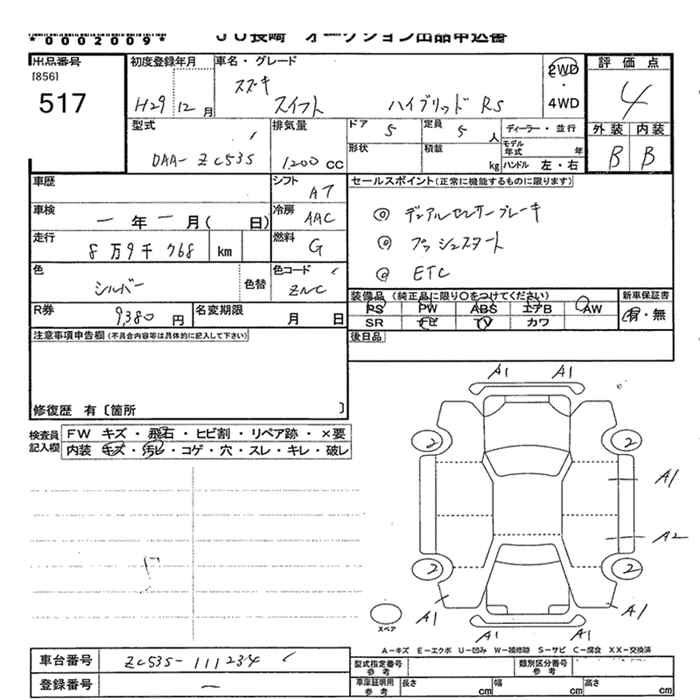 *0002009*
JU長崎 オークション出品申込書
出品番号
[856]
517
初度登録年月
H29 12月
車名・グレード
スズキ
スイフト ハイブリッド RS
2WD
・
4WD
評価点
4
外装 内装
B B
型式
DAA-ZC53S
排気量
1,200 CC
ドア 5
定員 5 人
形状
積載 kg
ディーラー・並行
モデル年式 年
ハンドル 左・右
車歴
シフト AT
車検 ー年ー月( 日)
冷房 AAC
走行 8万9千768 km
燃料 G
色 シルバー
色替
色コード ZNC
R券 9,380円
名変期限 月 日
セールスポイント(正常に機能するものに限ります)
◎ デュアルセンサーブレーキ
◎ プッシュスタート
◎ ETC
装備品 (純正品に限り○をつけてください)
PS PW ABS エアB AW
SR ナビ TV カワ
新車保証書
有・無
後日品
注意事項申告欄(不具合内容等は具体的に記入して下さい)
修復歴 有〔箇所 〕
検査員記入欄
FW キズ・飛石・ヒビ割・リペア跡・×要
内装 キズ・汚レ・コゲ・穴・スレ・キレ・破レ
A1 A1
2 2
A1
A2
2 2
A1 A1
A1 A1
スペア
A-キズ E-エクボ U-凹み W-補修跡 S-サビ C-腐食 XX-交換済
車台番号 ZC53S-111234
登録番号 ー
型式指定番号 参考
類別区分番号 参考
車庫証明用 参考
長さ cm
幅 cm
高さ cm